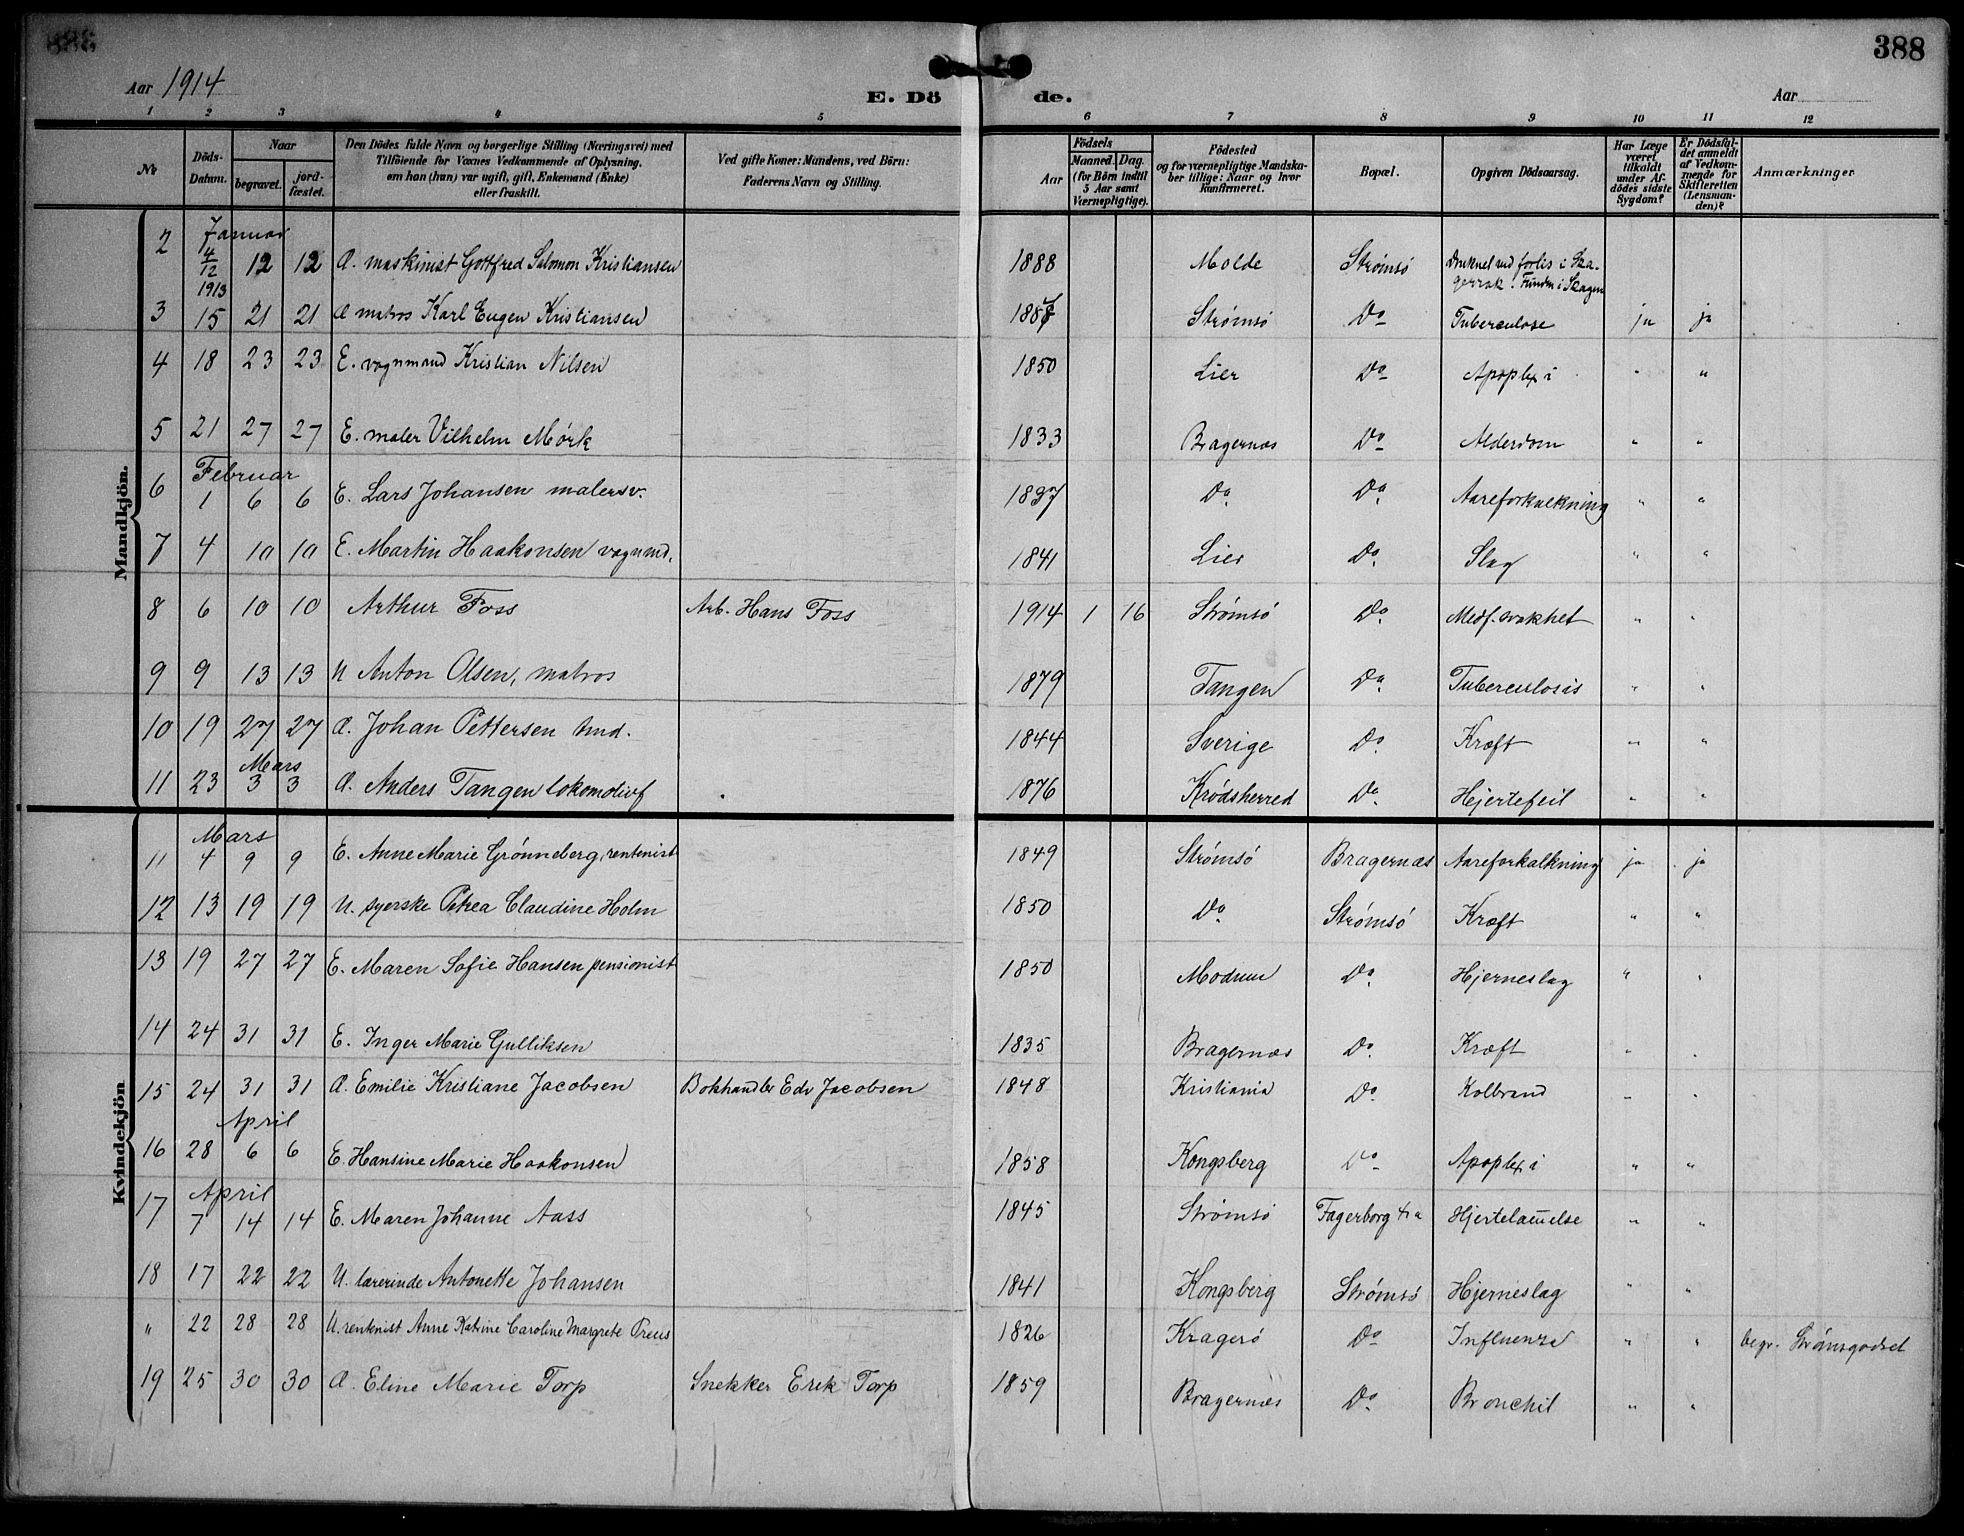 388
Aar 1914
E. Dö de.
Aar
1 2 3 4 5 6 7 8 9 10 11 12
No
Döds-Datum.
Naar
begravet.
jord-fæstet.
Den Dödes fulde Navn og borgerlige Stilling (Næringsvei) med
Tilföiende for Voxnes Vedkommende af Oplysning,
om han (hun) var ugift, gift, Enkemand (Enke)
eller fraskilt.
Ved gifte Koner: Mandens, ved Börn:
Faderens Navn og Stilling.
Födsels
Aar
Maaned. Dag.
(for Börn indtil
5 Aar samt
Værnepligtige).
Födested
og for værnepligtige Mandska-
ber tillige: Naar og hvor
konfirmeret.
Bopæl.
Opgiven Dödsaarsag.
Har Læge
været
tilkaldt
under Af-
dödes sidste
Sygdom?
Er Dödsfal-
det anmeldt
af Vedkom-
mende for
Skifteretten
(Lensman-
den)?
Anmærkninger
Mandkjön.
Januar
2 4/12 1913 12 12 G. maskinist Gottfred Salomon Kristiansen 1888 Molde Strømsö Druknet ved forlis i Ska-
gerrak. Funden i Skagen
3 15 21 21 G matros Karl Eugen Kristiansen Strømsö Do Tuberculose ja ja
4 18 23 23 E. vognmand Kristian Nilsen 1850 Lier Do Apoplexi " "
5 21 27 27 E. maler Vilhelm Mörk 1833 Bragernæs Do Alderdom " "
Februar
6 1 6 6 E. Lars Johansen malersv. 1837 Do Do Aareforkalkning " "
7 4 10 10 E. Martin Haakonsen vognmd. 1841 Lier Do Slag " "
8 6 10 10 Arthur Foss Arb. Hans Foss 1914 1 16 Strømsö Do Medf. svakhet " "
9 9 13 13 U Anton Olsen, matros 1879 Tangen Do Tuberculosis " "
10 19 27 27 G. Johan Pettersen tmd. 1844 Sverige Do Kræft " "
Mars
11 23 3 3 G. Anders Tangen lokomotivf 1876 Krødsherred Do Hjertefeil " "
Kvindekjön
Mars
11 4 9 9 E. Anne Marie Grønneberg, rentenist 1849 Strømsö Bragernæs Aareforkalkning ja ja
12 13 19 19 U. syerske Petrea Claudine Holm 1850 Do Strømsö Kræft " "
13 19 27 27 E. Maren Sofie Hansen pensionist 1850 Modum Do Hjerneslag " "
14 24 31 31 E. Inger Marie Gulliksen 1835 Bragernæs Do Kræft " "
15 24 31 31 G. Emilie Kristiane Jacobsen Bokhandler Edv Jacobsen 1848 Kristiania Do Kolbrand " "
April
16 28 6 6 E. Hansine Marie Haakonsen 1858 Kongsberg Do Apoplexi " "
April
17 7 14 14 E. Maren Johanne Aass 1845 Strømsö Fagerborg Kra Hjertelam̄else " "
18 17 22 22 U. lærerinde Antonette Johansen 1841 Kongsberg Strømsö Hjerneslag " "
" 22 28 28 U. rentenist Anne Katrine Caroline Margrete Preus 1826 Kragerö Do Influenza " " begr. Strömsgodset
19 25 30 30 G. Eline Marie Torp Snekker Erik Torp 1859 Bragernæs Do Bronchit " "